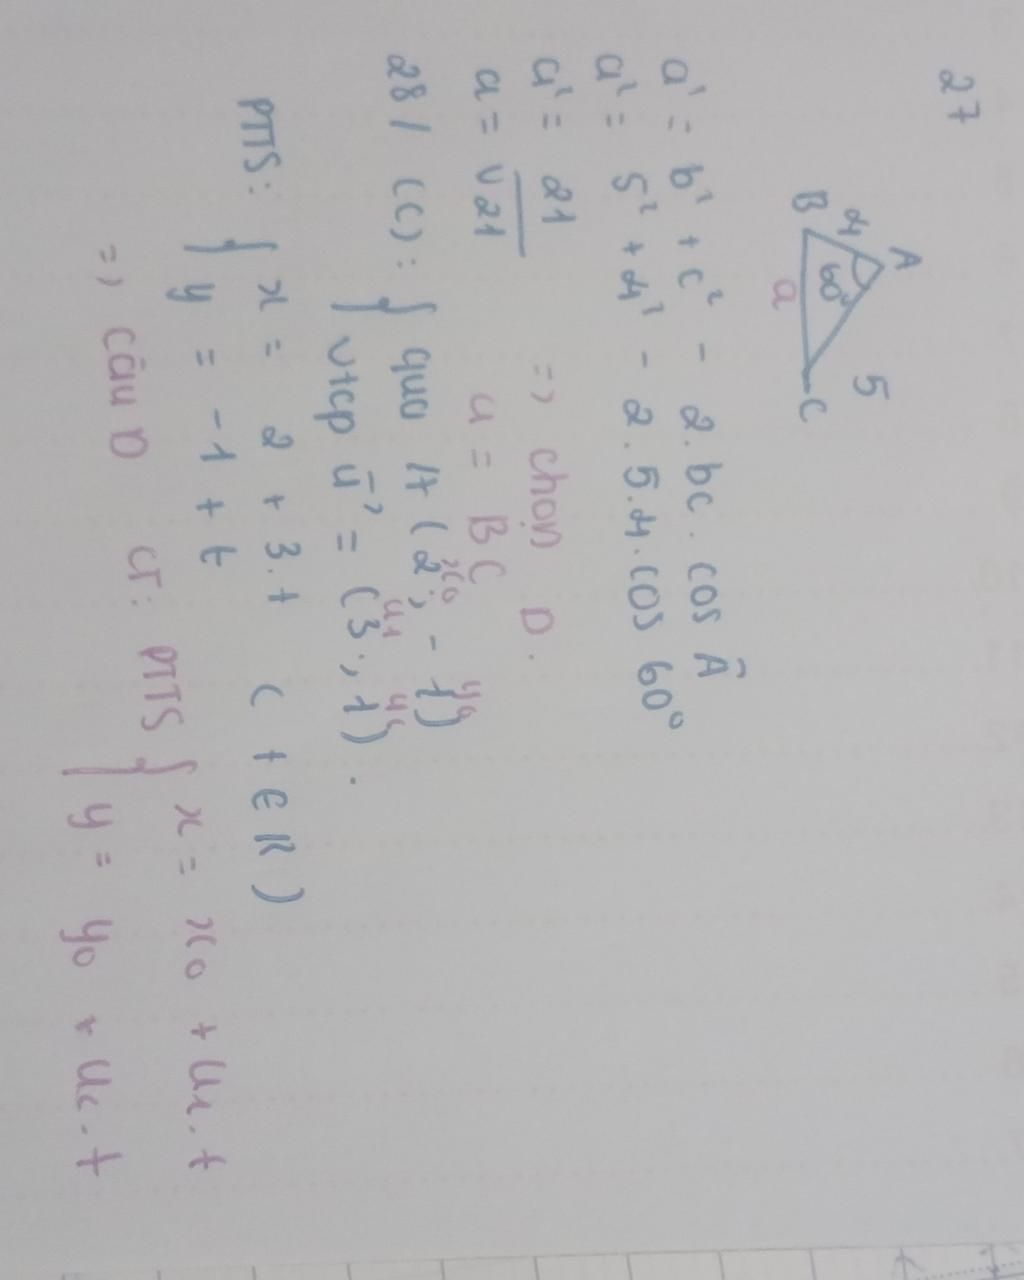 27
A
4
5
60°
B
a
C
a² = b² + c² - 2.bc.cos Â
a² = 5² + 4² - 2.5.4.cos 60°
a² = 21 => chọn D.
a = √21 a = BC
28/ (C): { qua A (2; -1) x₀ y₀
vtcp u⃗ = (3; 1). u₁ u₂
PTTS: { x = 2 + 3.t (t ∈ R)
y = -1 + t
=> câu D CT: PTTS { x = x₀ + u₁.t
y = y₀ + u₂.t